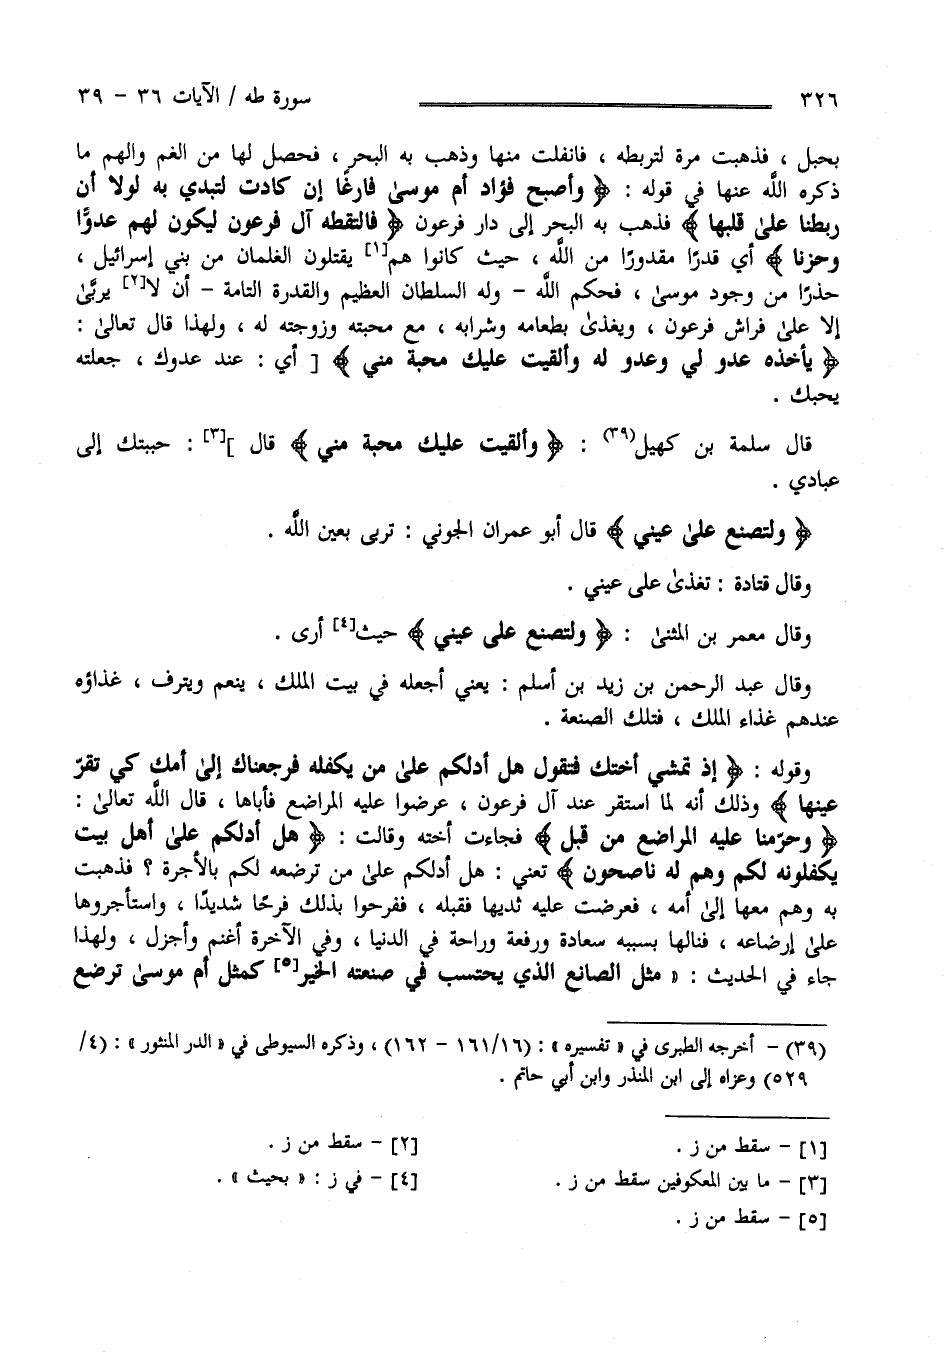 ٣٢٦ سورة طه / الآيات ٣٦ - ٣٩
بحبل ، فذهبت مرة لتربطه ، فانفلت منها وذهب به البحر ، فحصل لها من الغم والهم ما
ذكره اللَّه عنها في قوله : ﴿ وأصبح فؤاد أم موسىٰ فارغًا إن كادت لتبدي به لولا أن
ربطنا علىٰ قلبها ﴾ فذهب به البحر إلى دار فرعون ﴿ فالتقطه آل فرعون ليكون لهم عدوًّا
وحزنا ﴾ أي قدرًا مقدورًا من اللَّه ، حيث كانوا هم[١] يقتلون الغلمان من بني إسرائيل ،
حذرًا من وجود موسىٰ ، فحكم اللَّه - وله السلطان العظيم والقدرة التامة - أن لا[٢] يربَّىٰ
إلا علىٰ فراش فرعون ، ويغذىٰ بطعامه وشرابه ، مع محبته وزوجته له ، ولهذا قال تعالىٰ :
﴿ يأخذه عدو لي وعدو له وألقيت عليك محبة مني ﴾ [ أي : عند عدوك ، جعلته
يحبك .
قال سلمة بن كهيل(٣٩) : ﴿ وألقيت عليك محبة مني ﴾ قال ][٣] : حببتك إلى
عبادي .
﴿ ولتصنع علىٰ عيني ﴾ قال أبو عمران الجوني : تربى بعين اللَّه .
وقال قتادة : تغذىٰ على عيني .
وقال معمر بن المثنىٰ : ﴿ ولتصنع على عيني ﴾ حيث[٤] أرى .
وقال عبد الرحمن بن زيد بن أسلم : يعني أجعله في بيت الملك ، ينعم ويترف ، غذاؤه
عندهم غذاء الملك ، فتلك الصنعة .
وقوله : ﴿ إذ تمشي أختك فتقول هل أدلكم علىٰ من يكفله فرجعناك إلىٰ أمك كي تقرّ
عينها ﴾ وذلك أنه لما استقر عند آل فرعون ، عرضوا عليه المراضع فأباها ، قال اللَّه تعالىٰ :
﴿ وحرّمنا عليه المراضع من قبل ﴾ فجاءت أخته وقالت : ﴿ هل أدلكم علىٰ أهل بيت
يكفلونه لكم وهم له ناصحون ﴾ تعني : هل أدلكم علىٰ من ترضعه لكم بالأجرة ؟ فذهبت
به وهم معها إلىٰ أمه ، فعرضت عليه ثديها فقبله ، ففرحوا بذلك فرحًا شديدًا ، واستأجروها
علىٰ إرضاعه ، فنالها بسببه سعادة ورفعة وراحة في الدنيا ، وفي الآخرة أغنم وأجزل ، ولهذا
جاء في الحديث : « مثل الصانع الذي يحتسب في صنعته الخير[٥] كمثل أم موسىٰ ترضع
(٣٩) - أخرجه الطبرى في « تفسيره » : (١٦١/١٦ - ١٦٢) ، وذكره السيوطى في « الدر المنثور » : (٤/
٥٢٩) وعزاه إلى ابن المنذر وابن أبي حاتم .
[١] - سقط من ز . [٢] - سقط من ز .
[٣] - ما بين المعكوفين سقط من ز . [٤] - في ز : « بحيث » .
[٥] - سقط من ز .